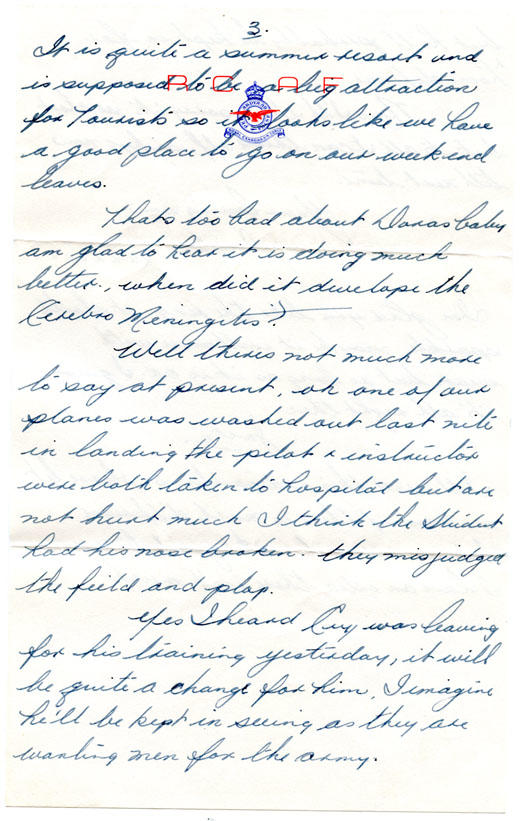 3.
It is quite a summer resort and
R C A F
is supposed to be a big attraction
for Tourists so it looks like we have
a good place to go on our weekend
leaves.
Thats too bad about Doras baby
am glad to hear it is doing much
better, when did it develope the
Cerebro Meningitis?
Well theres not much more
to say at present, oh one of our
planes was washed out last nite
in landing the pilot & instructor
were both taken to hospital but are
not hurt much I think the Student
had his nose broken. they misjudged
the field and plop.
Yes I heard Guy was leaving
for his training yesterday, it will
be quite a change for him, I imagine
he'll be kept in seeing as they are
wanting men for the army.